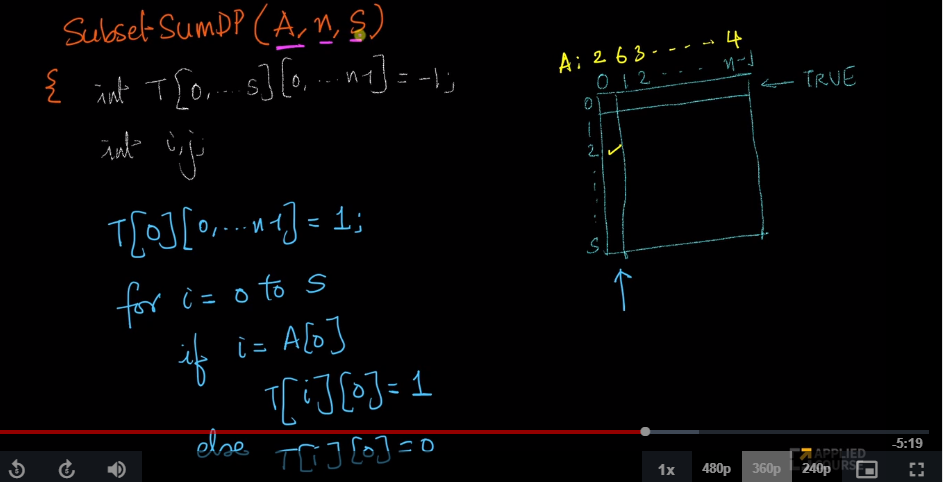 Subset-SumDP (A, n, S)
{ int T[0, ... S][0, ... n-1] = -1;
int i,j;
T[0][0, ... n-1] = 1;
for i = 0 to S
if i = A[0]
T[i][0] = 1
else T[i][0] = 0
A: 2 6 3 - - - - → 4
0 1 2 . . . . n-1
0
1
2 ✓
S
← TRUE
-5:19
1x 480p 360p 240p
APPLIED
COURSE